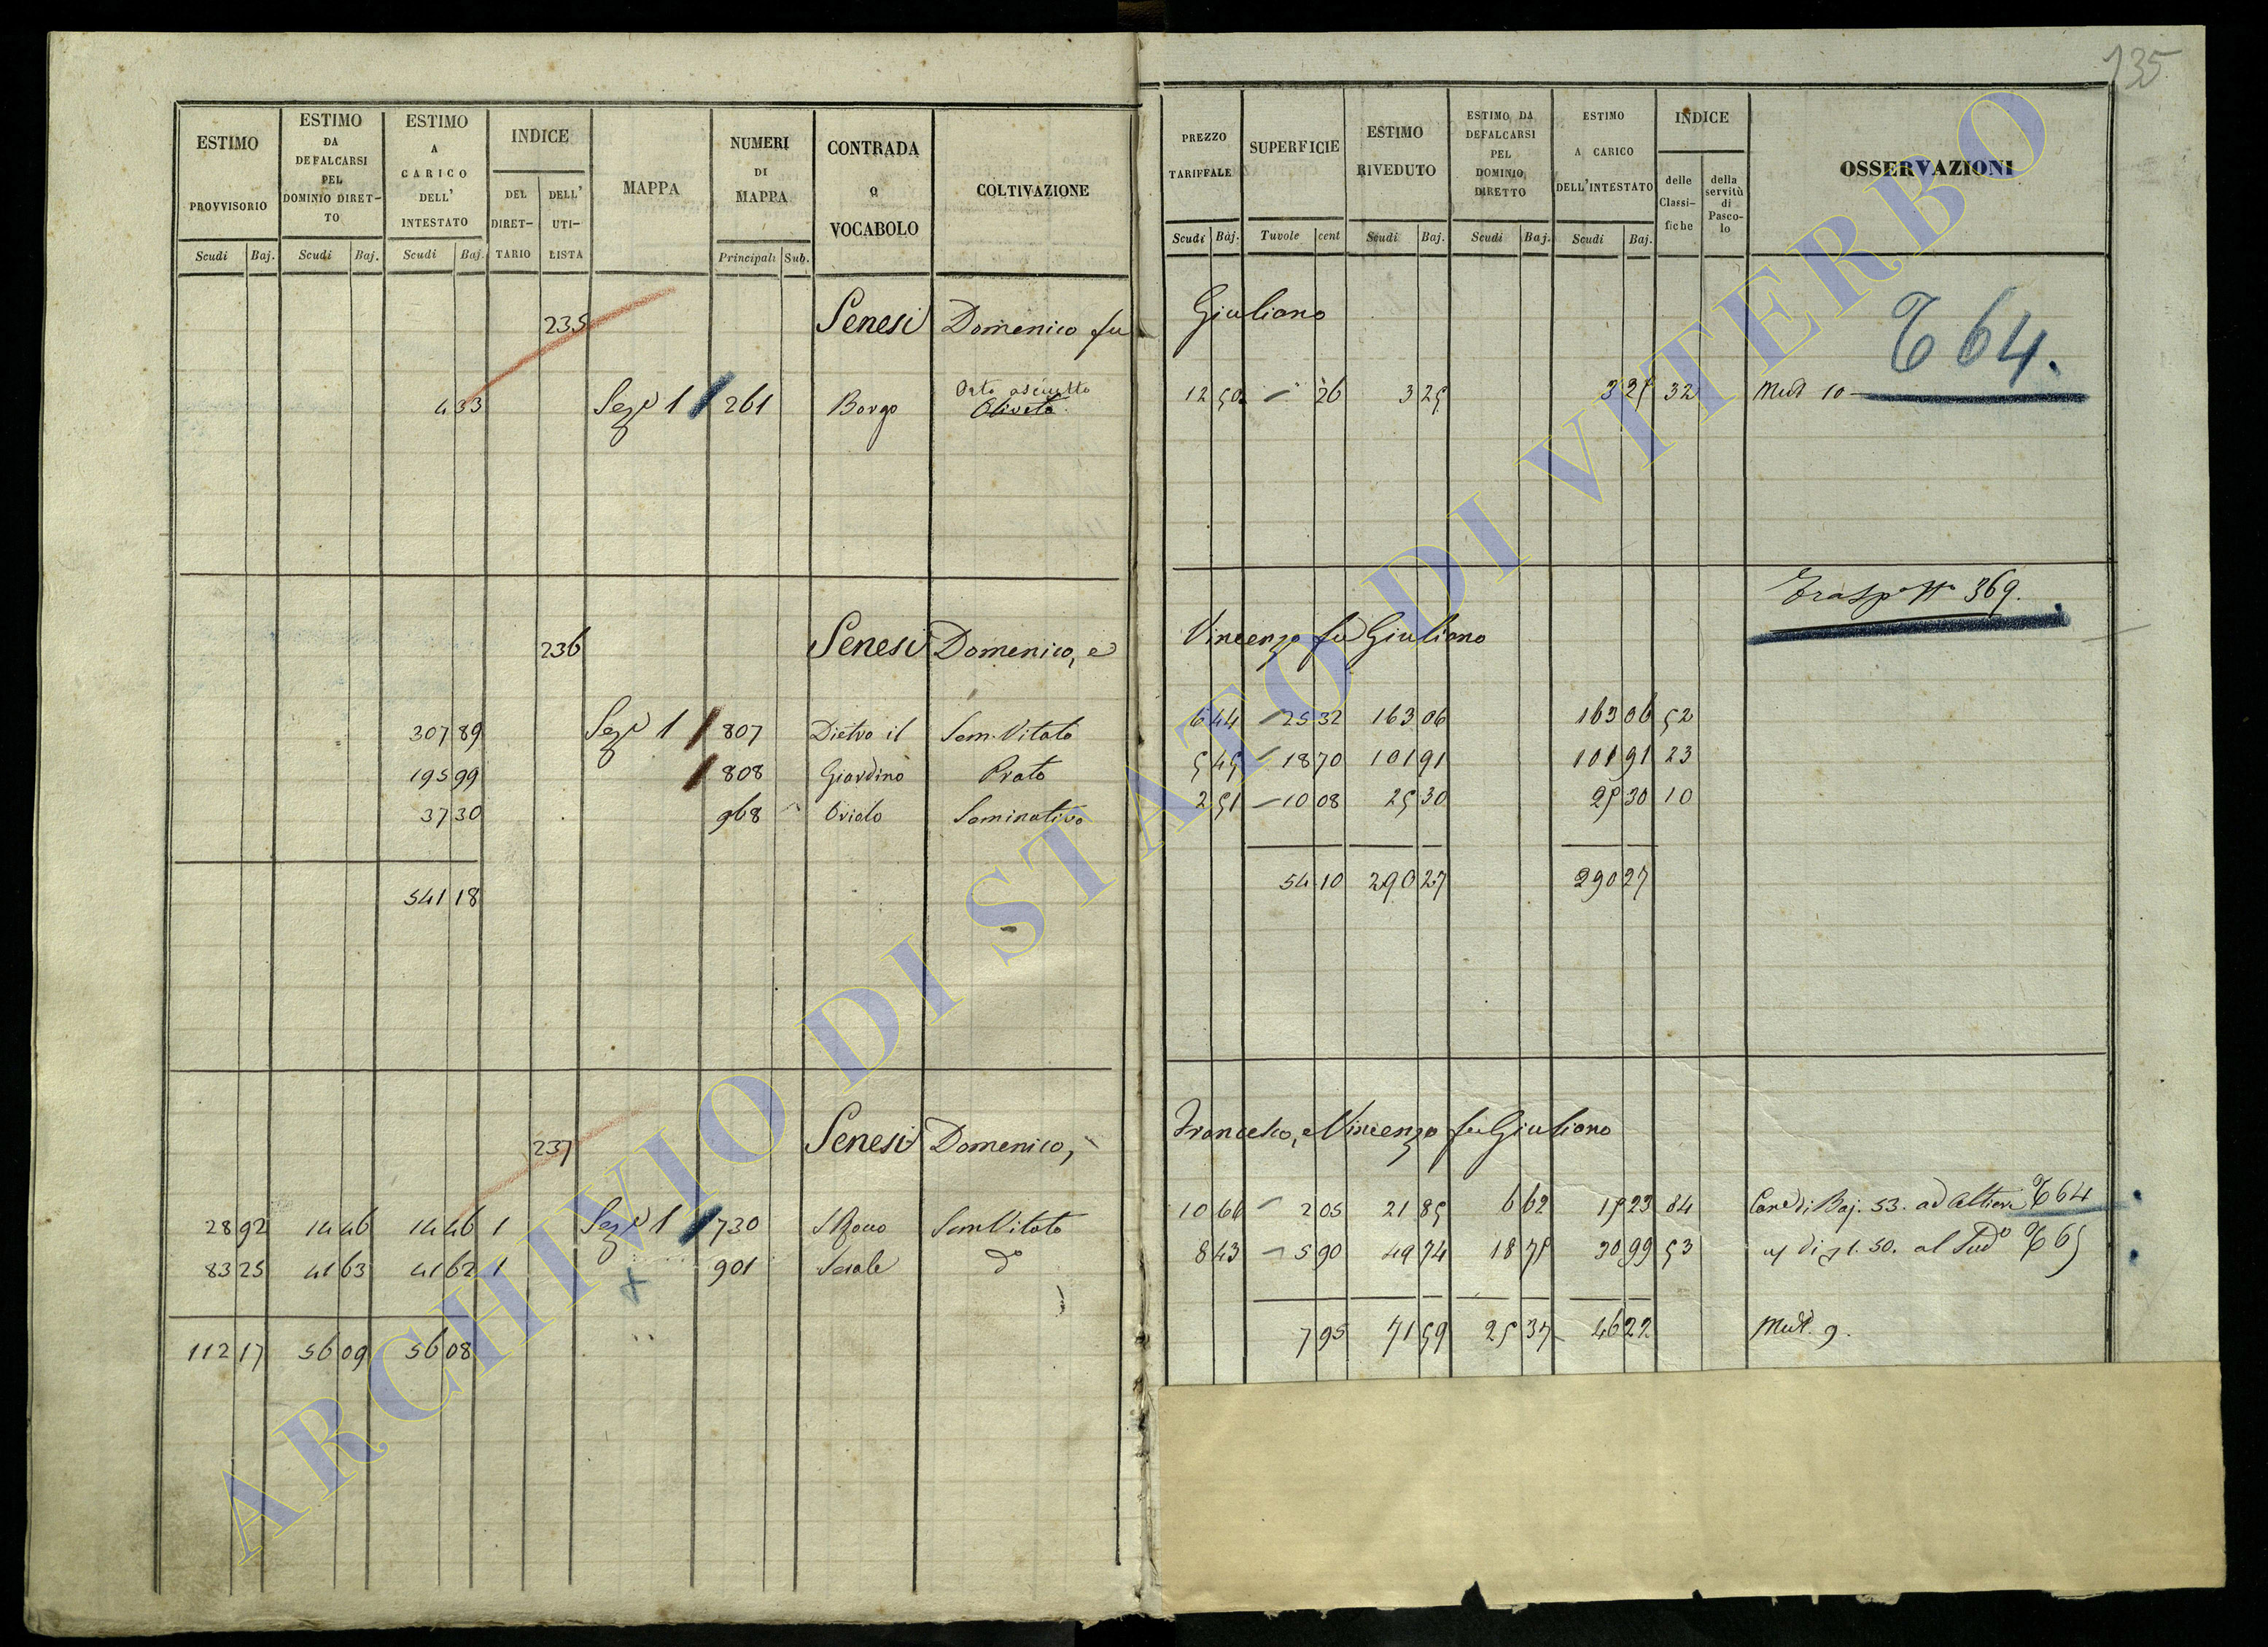 135
ESTIMO PROVVISORIO
ESTIMO DA DEFALCARSI PEL DOMINIO DIRETTO
ESTIMO A CARICO DELL' INTESTATO
INDICE
DEL DIRETTARIO
DELL' UTILISTA
MAPPA
NUMERI DI MAPPA
CONTRADA o VOCABOLO
COLTIVAZIONE
PREZZO TARIFFALE
SUPERFICIE
ESTIMO RIVEDUTO
ESTIMO DA DEFALCARSI PEL DOMINIO DIRETTO
ESTIMO A CARICO DELL'INTESTATO
INDICE
delle Classifiche
della servitù di Pascolo
OSSERVAZIONI
Scudi Baj. Scudi Baj. Scudi Baj. Principali Sub. Scudi Baj. Tavole cent Scudi Baj. Scudi Baj. Scudi Baj.
235 Senesi Domenico fu Giuliano
T 64.
Orto asciutto
4 33 Sez. 1 261 Borgo Oliveto 12 50 26 3 25 3 25 32 Mut 10
Trasp 369.
236 Senesi Domenico, e Vincenzo fu Giuliano
307 89 Sez. 1 807 Dietro il Sem. Vitato 6 44 25 32 163 06 163 06 52
195 99 808 Giardino Prato 5 45 18 70 101 91 101 91 23
37 30 968 Oriolo Seminativo 2 51 10 08 25 30 25 30 10
541 18 54 10 290 27 290 27
237 Senesi Domenico, Francesco, e Vincenzo fu Giuliano
28 92 14 46 14 46 1 Sez. 1 730 S. Rocco Sem Vitato 10 66 2 05 21 85 6 62 15 23 84 Can di Baj. 53. ad Altieri T 64
83 25 41 63 41 62 1 901 do 8 43 5 90 49 74 18 75 30 99 53 di 1. 50. al Sudo T 65
112 17 56 09 56 08 7 95 71 59 25 37 46 22 Mut. 9.
ARCHIVIO DI STATO DI VITERBO